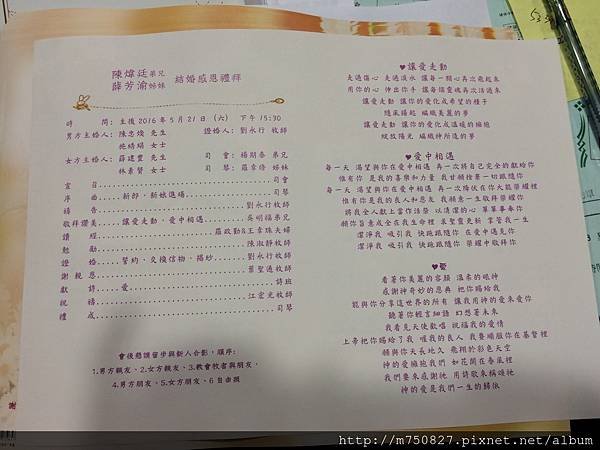 陳煒廷弟兄
薛芳渝姊妹
結婚感恩禮拜
時 間：主後2016年5月21日（六） 下午15:30
男方主婚人：陳忠燦 先生 證婚人：劉永行 牧師
施綉綢 女士
女方主婚人：薛建豐 先生 司 會：楊期泰 弟兄
林素賢 女士 司 琴：羅聿倚 姊妹
宣 召 司會
序 曲 新郎、新娘進場 司琴
禱 告 劉永行牧師
敬拜讚美 讓愛走動、愛中相遇 吳明福弟兄
讀 經 羅政勤&王韋珠夫婦
勉 勵 陳淑靜牧師
證 婚 誓約、交換信物、揭紗 劉永行牧師
謝親恩 葉聖通牧師
獻 詩 愛 詩班
祝 禱 江宏光牧師
禮 成 司琴
會後懇請留步與新人合影，順序：
1.男方親友、2.女方親友、3.教會牧者與朋友、
4.男方朋友、5.女方朋友、6自由照
♥讓愛走動
走過傷心 走過淚水 讓每一顆心再次飛起來
用你的心 伸出你手 讓每個靈魂再次活過來
讓愛走動 讓你的愛化成希望的種子
隨風揚起 編織美麗的夢
讓愛走動 讓你的愛化成溫暖的擁抱
綻放陽光 編織神所造的夢
♥愛中相遇
每一天 渴望與你在愛中相遇 再一次將自己完全的獻給你
惟有你 是我的喜樂和力量 我甘願捨棄一切跟隨你
每一天 渴望與你在愛中相遇 再一次降伏在你大能榮耀裡
惟有你 是我的良人和恩友 我願意一生敬拜榮耀你
將我全人獻上當作活祭 以清潔的心 單單事奉你
願你旨意成全在我生命裡 求聖靈充滿 掌管我一生
潔淨我 吸引我 快跑跟隨你 在愛中遇見你
潔淨我 吸引我 快跑跟隨你 榮耀中敬拜你
♥愛
看著你美麗的容顏 溫柔的眼神
感謝神奇妙的恩典 把你賜給我
能與你分享這世界的所有 讓我用神的愛來愛你
聽著你輕言細語 幻想著未來
我看見天使歡唱 祝福我的愛情
上帝把你賜給了我 唯我的良人 我要順服你在基督裡
願與你天長地久 飛翔於彩色天空
神的愛擁抱我們 如花開在春風裡
我們要來感謝祂 用詩歌來稱頌祂
神的愛是我們一生的歸依
謝
http://m750827.pixnet.net/album